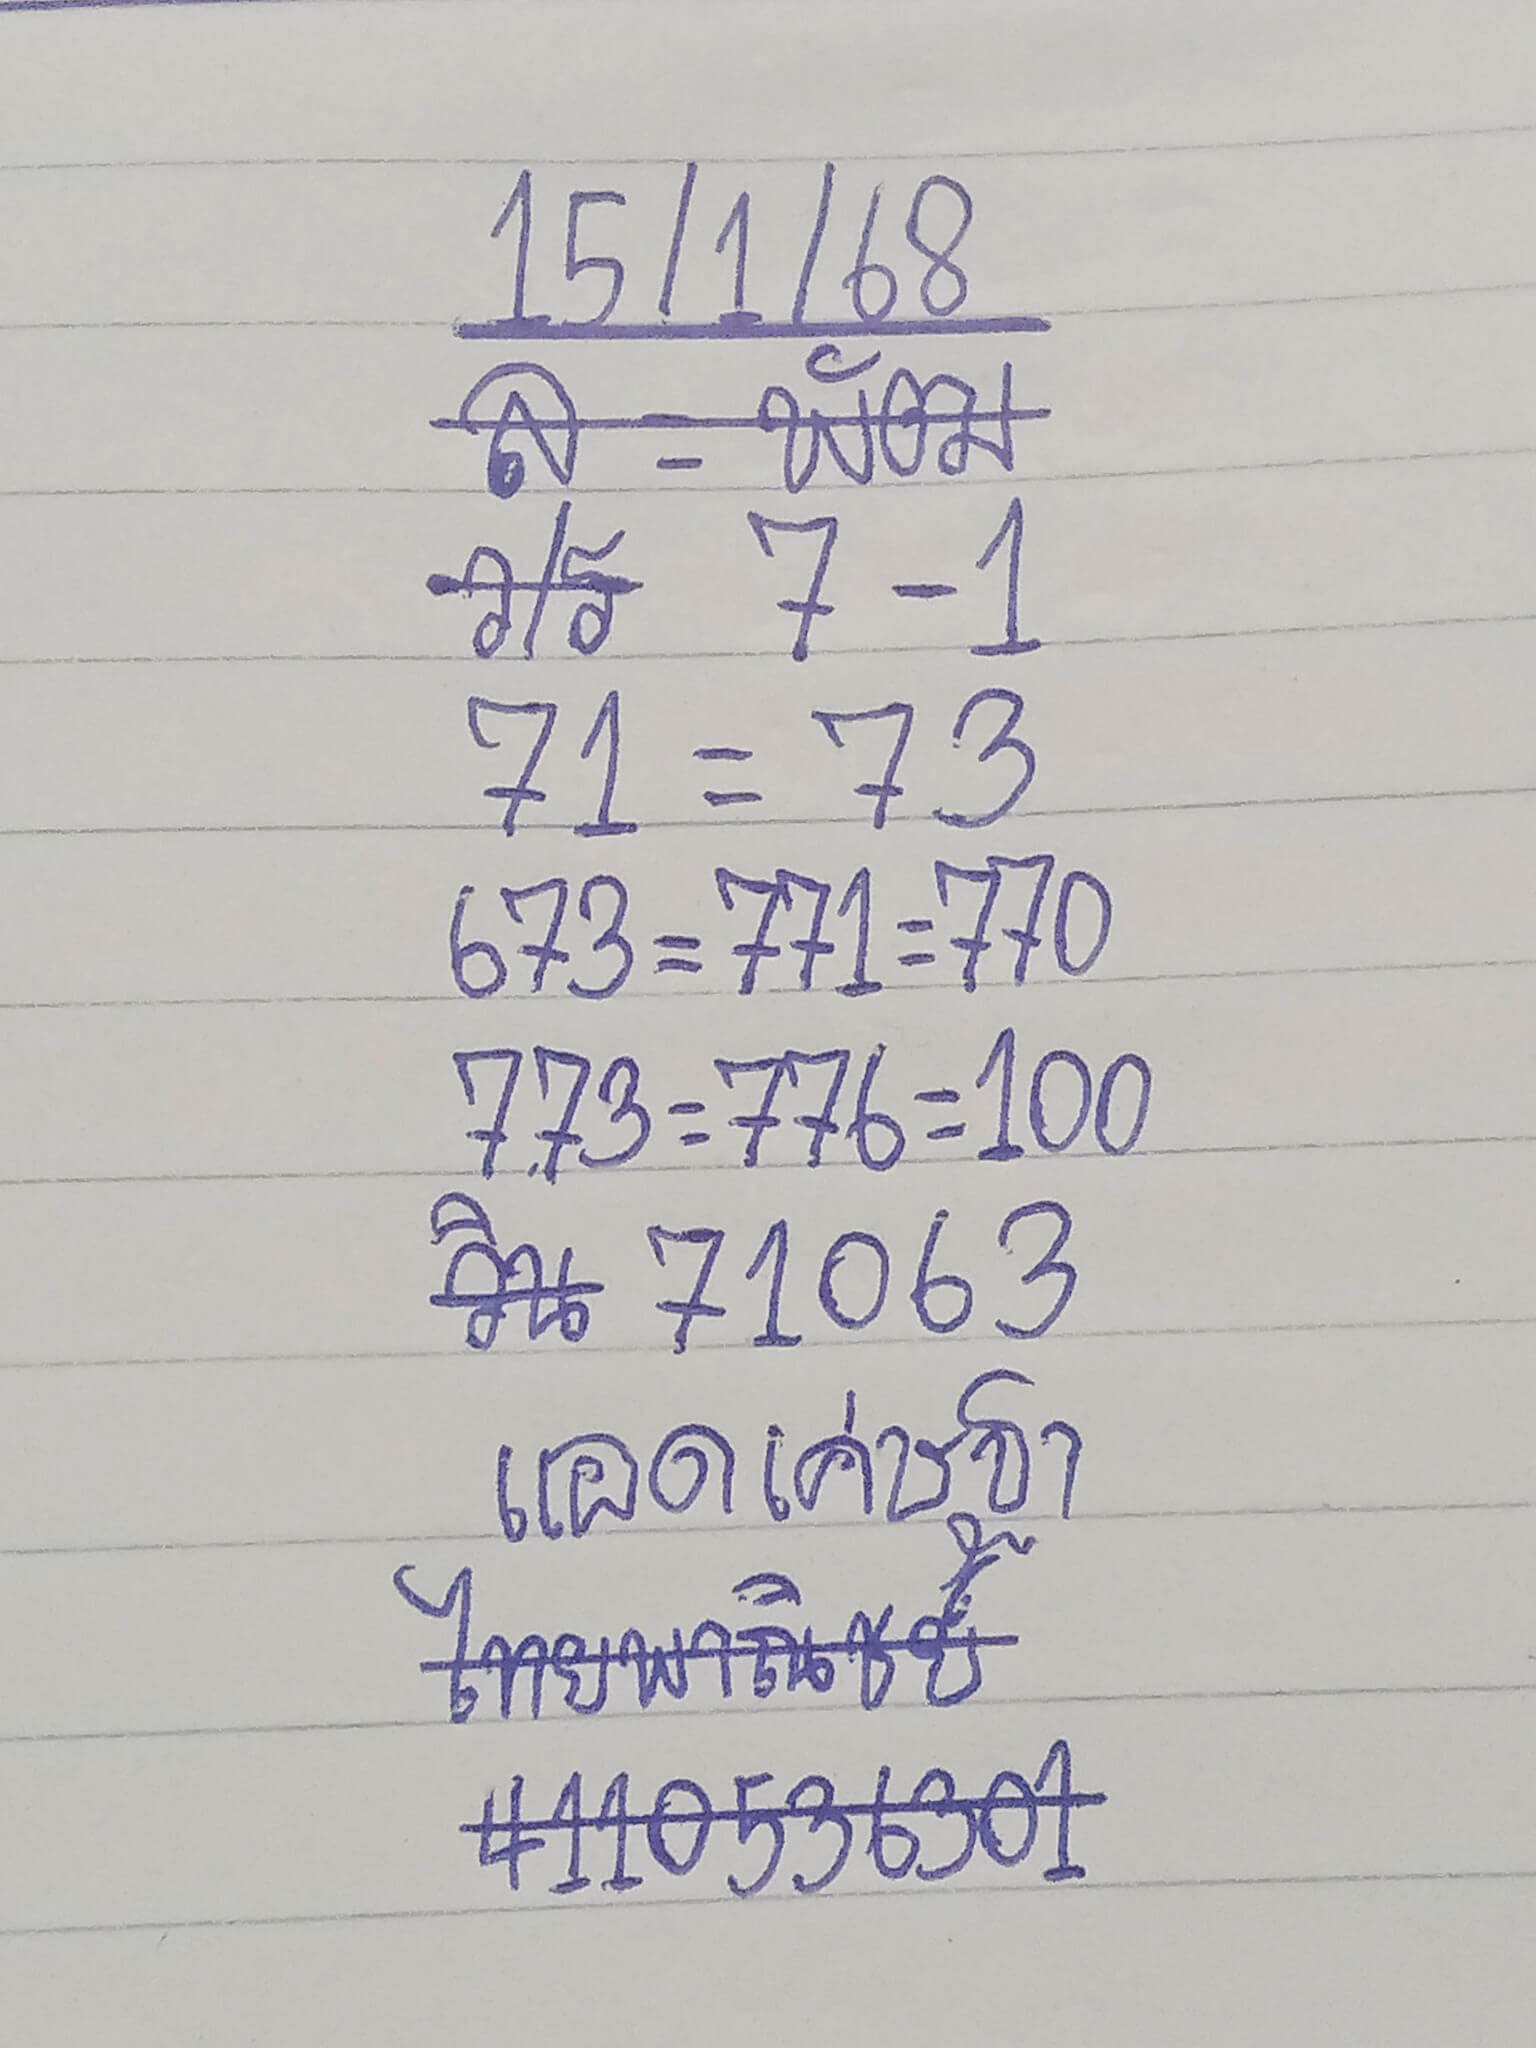 15/1/68
ล = พัอม
ว/ร 7 - 1
71 = 73
673=771=770
773=776=100
วิน 71063
แอดเค่าชูชา
ไทยพาณิชย์
4110536301